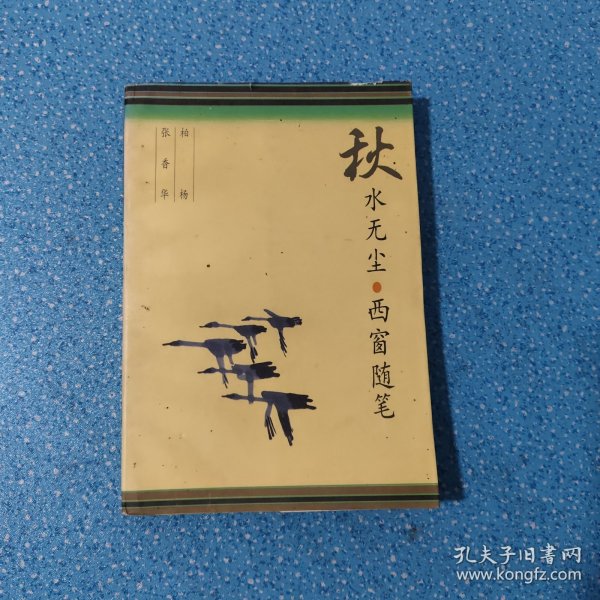 秋水无尘·西窗随笔
柏杨
张香华
孔夫子旧书网
www.kongfz.com